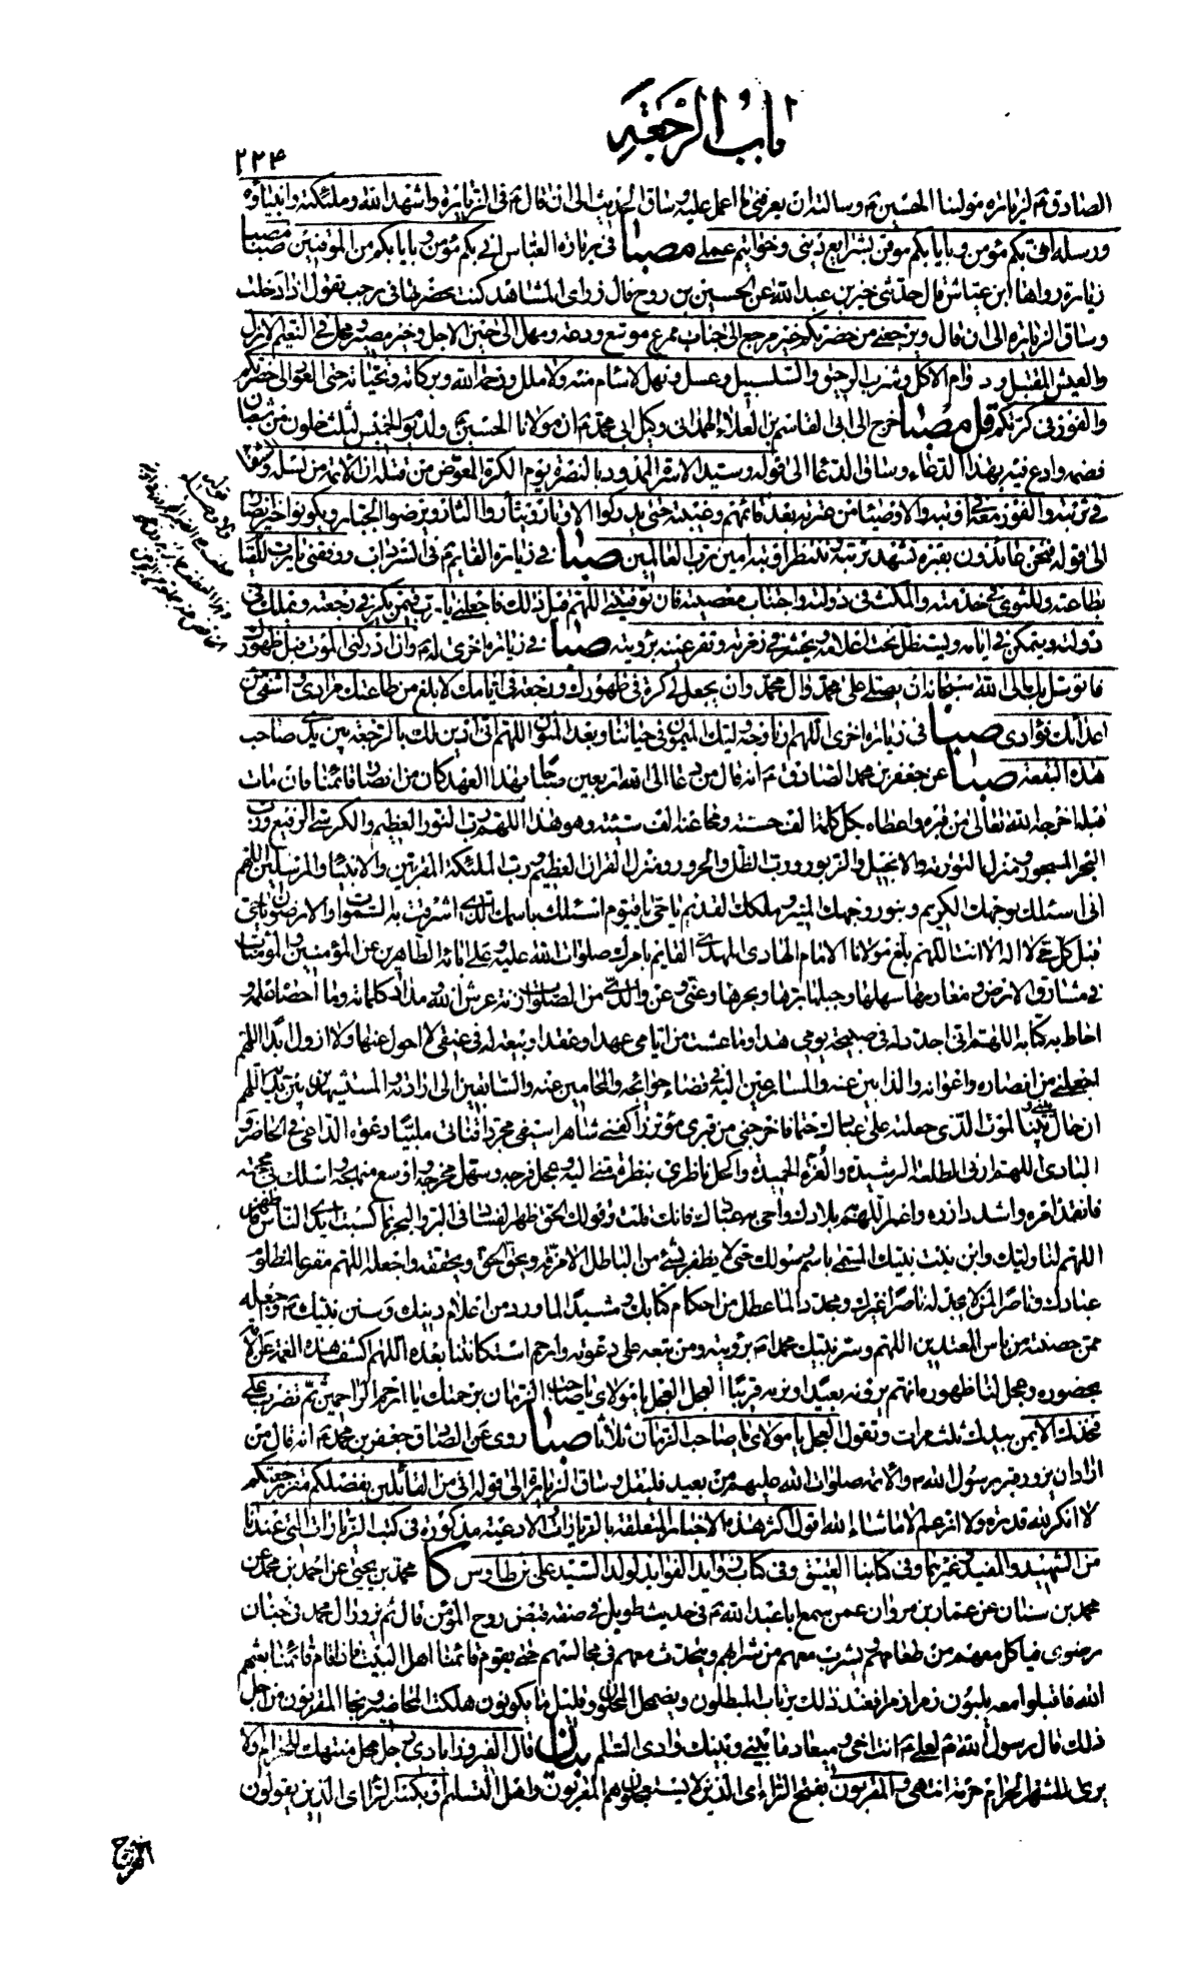 باب الرجعة
٢٢٤
الصادق م لزيارة مولينا الحسين م وسالته ان يعرفني ما اعمل عليه وساق الحديث الى ان قال م في الزيارة واشهد الله وملئكته وانبياؤه
ورسله اني بكم مؤمن وبايابكم موقن بشرايع ديني وخواتيم عملي مصبا في زيارة العباس اني بكم مؤمن وبايابكم من الموقنين مصبا
زيارة رواها ابن عياش قال حدثني خير بن عبد الله عن الحسين بن روح قال زر اي المشاهد كنت بحضرتها في رجب تقول اذا دخلت
وساق الزيارة الى ان قال ويرجعني من حضرتكم خير مرجع الى جناب ممرع موسع ودعة ومهل الى حين الاجل وخير مصير ومحل في النعيم الازل
والعيش المقتبل ودوام الاكل وشرب الرحيق والسلسبيل وعسل ونهل لا سام منه ولا ملل ورحمة الله وبركاته وتحياته حتى العود الى حضرتكم
والفوز في كرتكم قل مصبا خرج الى ابي القاسم بن العلاء الهمداني وكيل ابي محمد م ان مولانا الحسين م ولد يوم الخميس لثلث خلون من شعبان
فصمه وادع فيه بهذا الدعاء وساق الدعاء الى قوله وسيد الاسرة الممدود بالنصرة يوم الكرة المعوض من قتله ان الائمة من نسله والشفاء
في تربته والفوز معه في اوبته والاوصياء من عترته بعد قائمهم وغيبته حتى يدركوا الاوتار ويثاروا الثار ويرضوا الجبار ويكونوا خير انصار
الى قوله فنحن عائذون بقبره نشهد تربته وننتظر اوبته امين رب العالمين صبا في زيارة القايم م في السرداب ووفقني يا رب للقيام
بطاعته وللثوى في خدمته والمكث في دولته واجتناب معصيته فان توفيتني اللهم قبل ذلك فاجعلني يا رب فيمن يكر في رجعته ويملك في
دولته ويتمكن في ايامه ويستظل تحت اعلامه ويحشر في زمرته وتقر عينه برويته صبا في زيارة اخرى له م وان ادركني الموت قبل ظهورك
فاتوسل بك الى الله سبحانه ان يصلي على محمد وال محمد وان يجعل لي كرة في ظهورك ورجعة في ايامك لابلغ من طاعتك مرادي واشفي من
اعدائك فؤادي صبا في زيارة اخرى اللهم ارنا وجه وليك الميمون في حياتنا وبعد المنون اللهم اني ادين لك بالرجعة بين يدي صاحب
هذه البقعة صبا عن جعفر بن محمد الصادق م انه قال من دعا الى الله اربعين صباحا بهذا العهد كان من انصار قائمنا فان مات
قبله اخرجه الله تعالى من قبره واعطاه بكل كلمة الف حسنة ومحا عنه الف سيئة وهو هذا اللهم رب النور العظيم والكرسي الرفيع ورب
البحر المسجور ومنزل التورية والانجيل والزبور ورب الظل والحرور ومنزل القران العظيم ورب الملئكة المقربين والانبياء والمرسلين اللهم
اني اسئلك بوجهك الكريم وبنور وجهك المنير وملكك القديم يا حي يا قيوم اسئلك باسمك الذي اشرقت به السموات والارضون يا حي
قبل كل حي لا اله الا انت اللهم بلغ مولانا الامام الهادي المهدي القايم بامرك صلوات الله عليه وعلى ابائه الطاهرين عن المؤمنين والمؤمنات
في مشارق الارض ومغاربها سهلها وجبلها برها وبحرها وعني وعن والدي من الصلوات زنة عرش الله ومداد كلماته وما احصاه علمه و
احاط به كتابه اللهم اني اجدد له في صبيحة يومي هذا وما عشت من ايامي عهدا وعقدا وبيعة له في عنقي لا احول عنها ولا ازول ابدا اللهم
اجعلني من انصاره واعوانه والذابين عنه والمسارعين اليه في قضاء حوائجه والمحامين عنه والسابقين الى ارادته والمستشهدين بين يديه اللهم
ان حال بيني وبينه الموت الذي جعلته على عبادك حتما فاخرجني من قبري مؤتزرا كفني شاهرا سيفي مجردا قناتي ملبيا دعوة الداعي في الحاضر و
البادي اللهم ارني الطلعة الرشيدة والغرة الحميدة واكحل ناظري بنظرة مني اليه وعجل فرجه وسهل مخرجه واوسع منهجه واسلك بي محجته
فانفذ امره واشدد ازره واعمر اللهم به بلادك واحي به عبادك فانك قلت وقولك الحق ظهر الفساد في البر والبحر بما كسبت ايدي الناس فاظهر
اللهم لنا وليك وابن بنت نبيك المسمى باسم رسولك حتى لا يظفر بشيء من الباطل الا مزقه ويحق الحق ويحققه واجعله اللهم مفزعا لمظلوم
عبادك وناصرا لمن لا يجد له ناصرا غيرك ومجددا لما عطل من احكام كتابك ومشيدا لما ورد من اعلام دينك وسنن نبيك م واجعله
ممن حصنته من باس المعتدين اللهم وسر نبيك محمدا م برؤيته ومن تبعه على دعوته وارحم استكانتنا بعده اللهم اكشف هذه الغمة عن الامة
بحضوره وعجل لنا ظهوره انهم يرونه بعيدا ونريه قريبا العجل العجل يا مولاي يا صاحب الزمان برحمتك يا ارحم الراحمين ثم تضرب على
فخذك الايمن بيدك ثلث مرات وتقول العجل يا مولاي يا صاحب الزمان ثلاثا صبا روي عن الصادق جعفر بن محمد م انه قال من
اراد ان يزور قبر رسول الله م والائمة صلوات الله عليهم من بعيد فليقل وساق الزيارة الى قوله اني من القائلين بفضلكم مقر برجعتكم
لا انكر لله قدرة ولا ازعم الا ما شاء الله اقول اكثر هذه الاخبار المتعلقة بالزيارات والادعية مذكورة في كتب الزيارات التي عندنا
من الشهيد والمفيد وغيرهما وفي كتابنا العتيق وفي كتاب زوايد الفوايد لولد السيد علي بن طاوس كا محمد بن يحيى عن احمد بن محمد عن
محمد بن سنان عن عمار بن مروان عمن سمع ابا عبد الله م في حديث طويل في صفة قبض روح المؤمن قال ثم يزور ال محمد في جنان
رضوى فياكل معهم من طعامهم ويشرب معهم من شرابهم ويتحدث معهم في مجالسهم حتى يقوم قائمنا اهل البيت فاذا قام قائمنا بعثهم
الله فاقبلوا معه يلبون زمرا زمرا فعند ذلك يرتاب المبطلون ويضمحل المحلون وقليل ما يكونون هلكت المحاضير ونجا المقربون من اجل
ذلك قال رسول الله م لعلي م انت اخي وميعاد ما بيني وبينك وادي السلم بيان قال الفيروزابادي رجل محل منتهك للحرام او لا
يرى للشهر الحرام حرمة انتهى والمقربون بفتح الراء اي الذين لا يستعجلون هم المقربون واهل التسليم او بكسر الراء اي الذين يقولون
الفرج